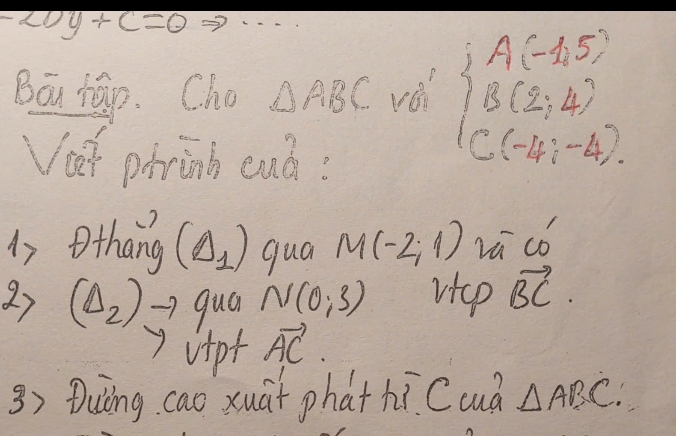 -2by + C = 0 ⇒ ....
Bài tập. Cho ΔABC với { A(-1;5)
B(2; 4)
C(-4; -4).
Viết ptrình của :
1> Đthẳng (Δ₁) qua M(-2; 1) và có
vtcp BC→.
2> (Δ₂) → qua N(0;3)
↘ vtpt AC→.
3> Đường cao xuất phát từ C của ΔABC.